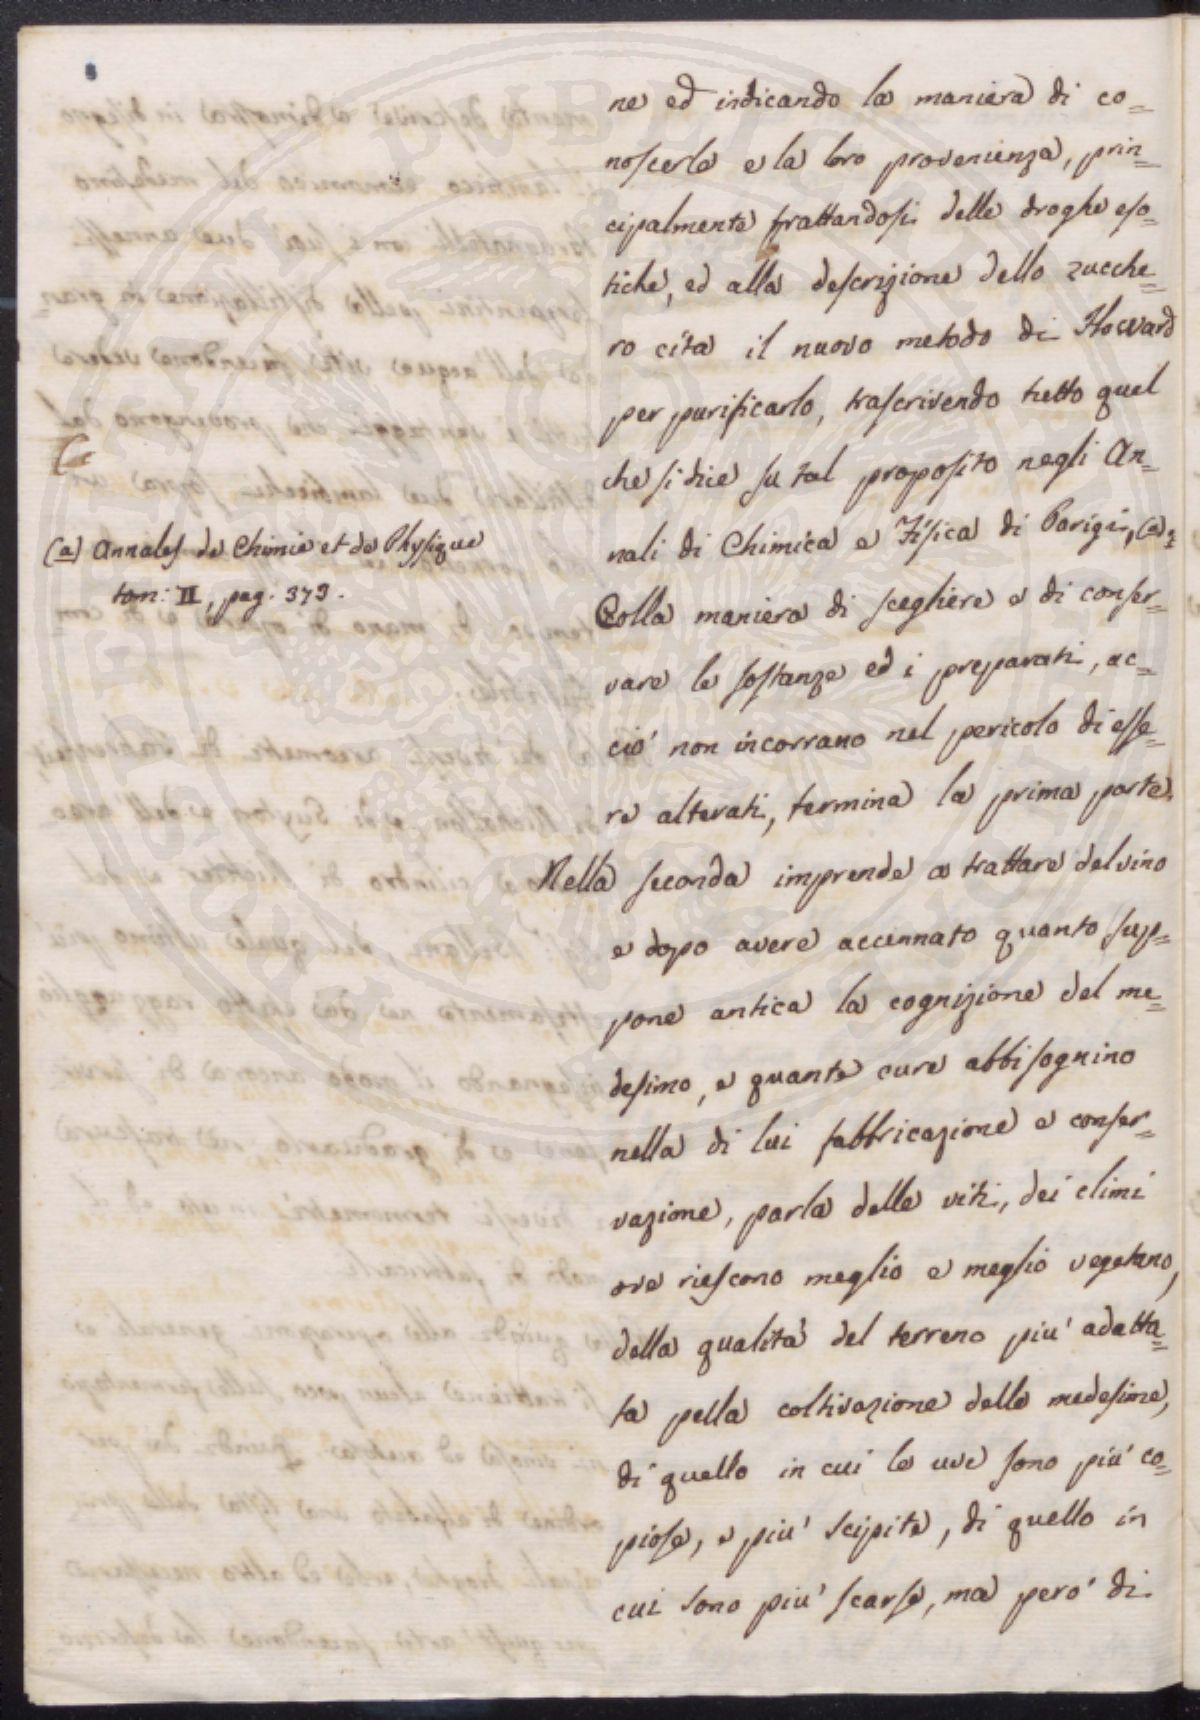 ne ed indicando la maniera di co=
noscerle e la loro provenienza, prin=
cipalmente trattandosi delle droghe eso=
tiche, ed alla descrizione dello zucche=
ro cita il nuovo metodo di Howard
per purificarlo, trascrivendo tutto quel
che si dice su tal proposito negli An=
nali di Chimica e Fisica di Parigi, (a)
Colla maniera di scegliere e di conser=
vare le sostanze ed i preparati, ac=
ciò non incorrano nel pericolo di esse=
re alterati, termina la prima parte.
Nella seconda imprende a trattare del vino
e dopo avere accennato quanto sup=
pone antica la cognizione del me=
desimo, e quante cure abbisognino
nella di lui fabbricazione e conser=
vazione, parla delle viti, dei climi
ove riescono meglio e meglio vegetano,
della qualità del terreno più adatta=
ta pella coltivazione delle medesime,
di quello in cui le uve sono più co=
piose, e più scipite, di quello in
cui sono più scarse, ma però di
(a) Annales de Chimie et de Physique
tom: II, pag. 373.